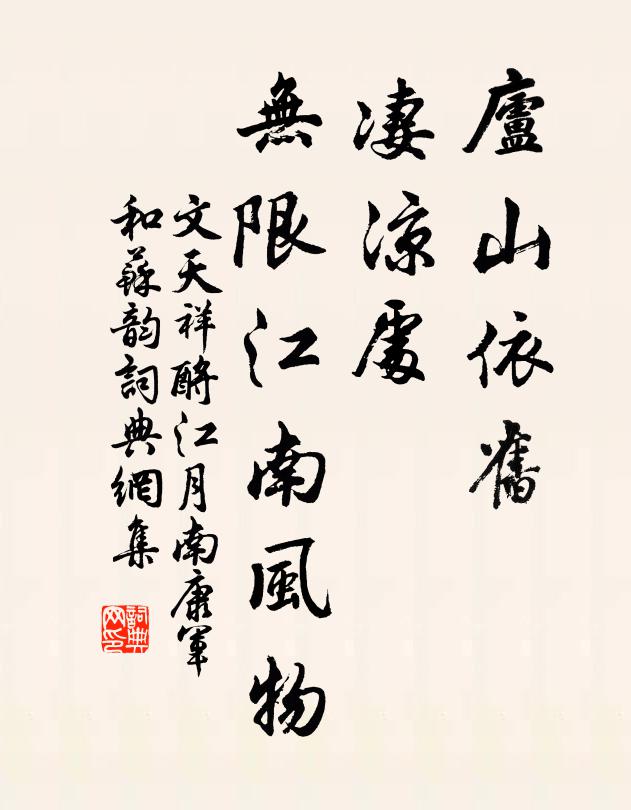 廬山依舊
淒涼處
無限江南風物
文天祥酹江月南康軍
和蘇韵詞典網集
詞典网印